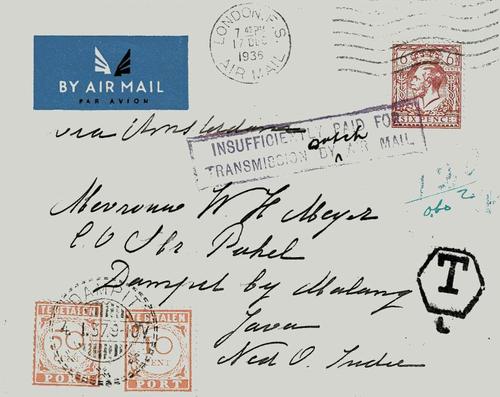 LONDON. F.S
7 45 PM
17 DEC
1936
AIR MAIL
6 6
SIX PENCE
BY AIR MAIL
PAR AVION
via Amsterdam
dutch
INSUFFICIENTLY PAID FOR
TRANSMISSION BY AIR MAIL
Mevrouw W H Meyer
Dampit by Malang
Java
Ned O. Indie
T
DAMPIT
4.1.37
TE BETALEN
50
PORT
TE BETALEN
10
CENT
PORT
0.60